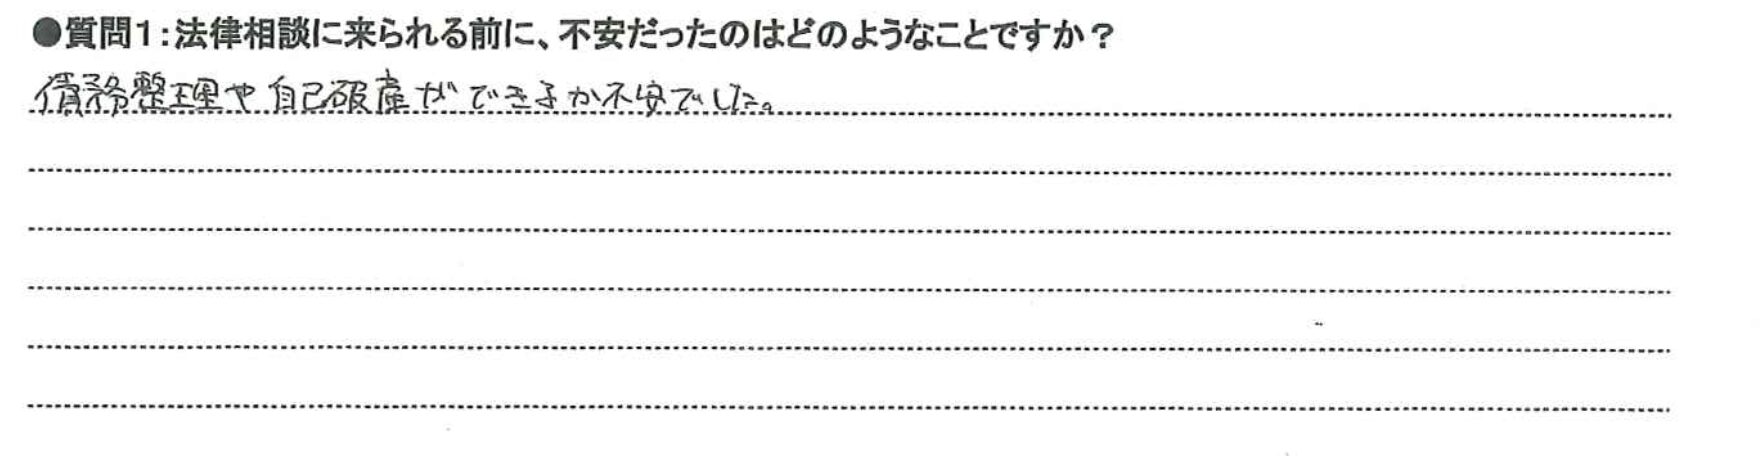 ●質問1:法律相談に来られる前に、不安だったのはどのようなことですか?
債務整理や自己破産ができるか不安でした。